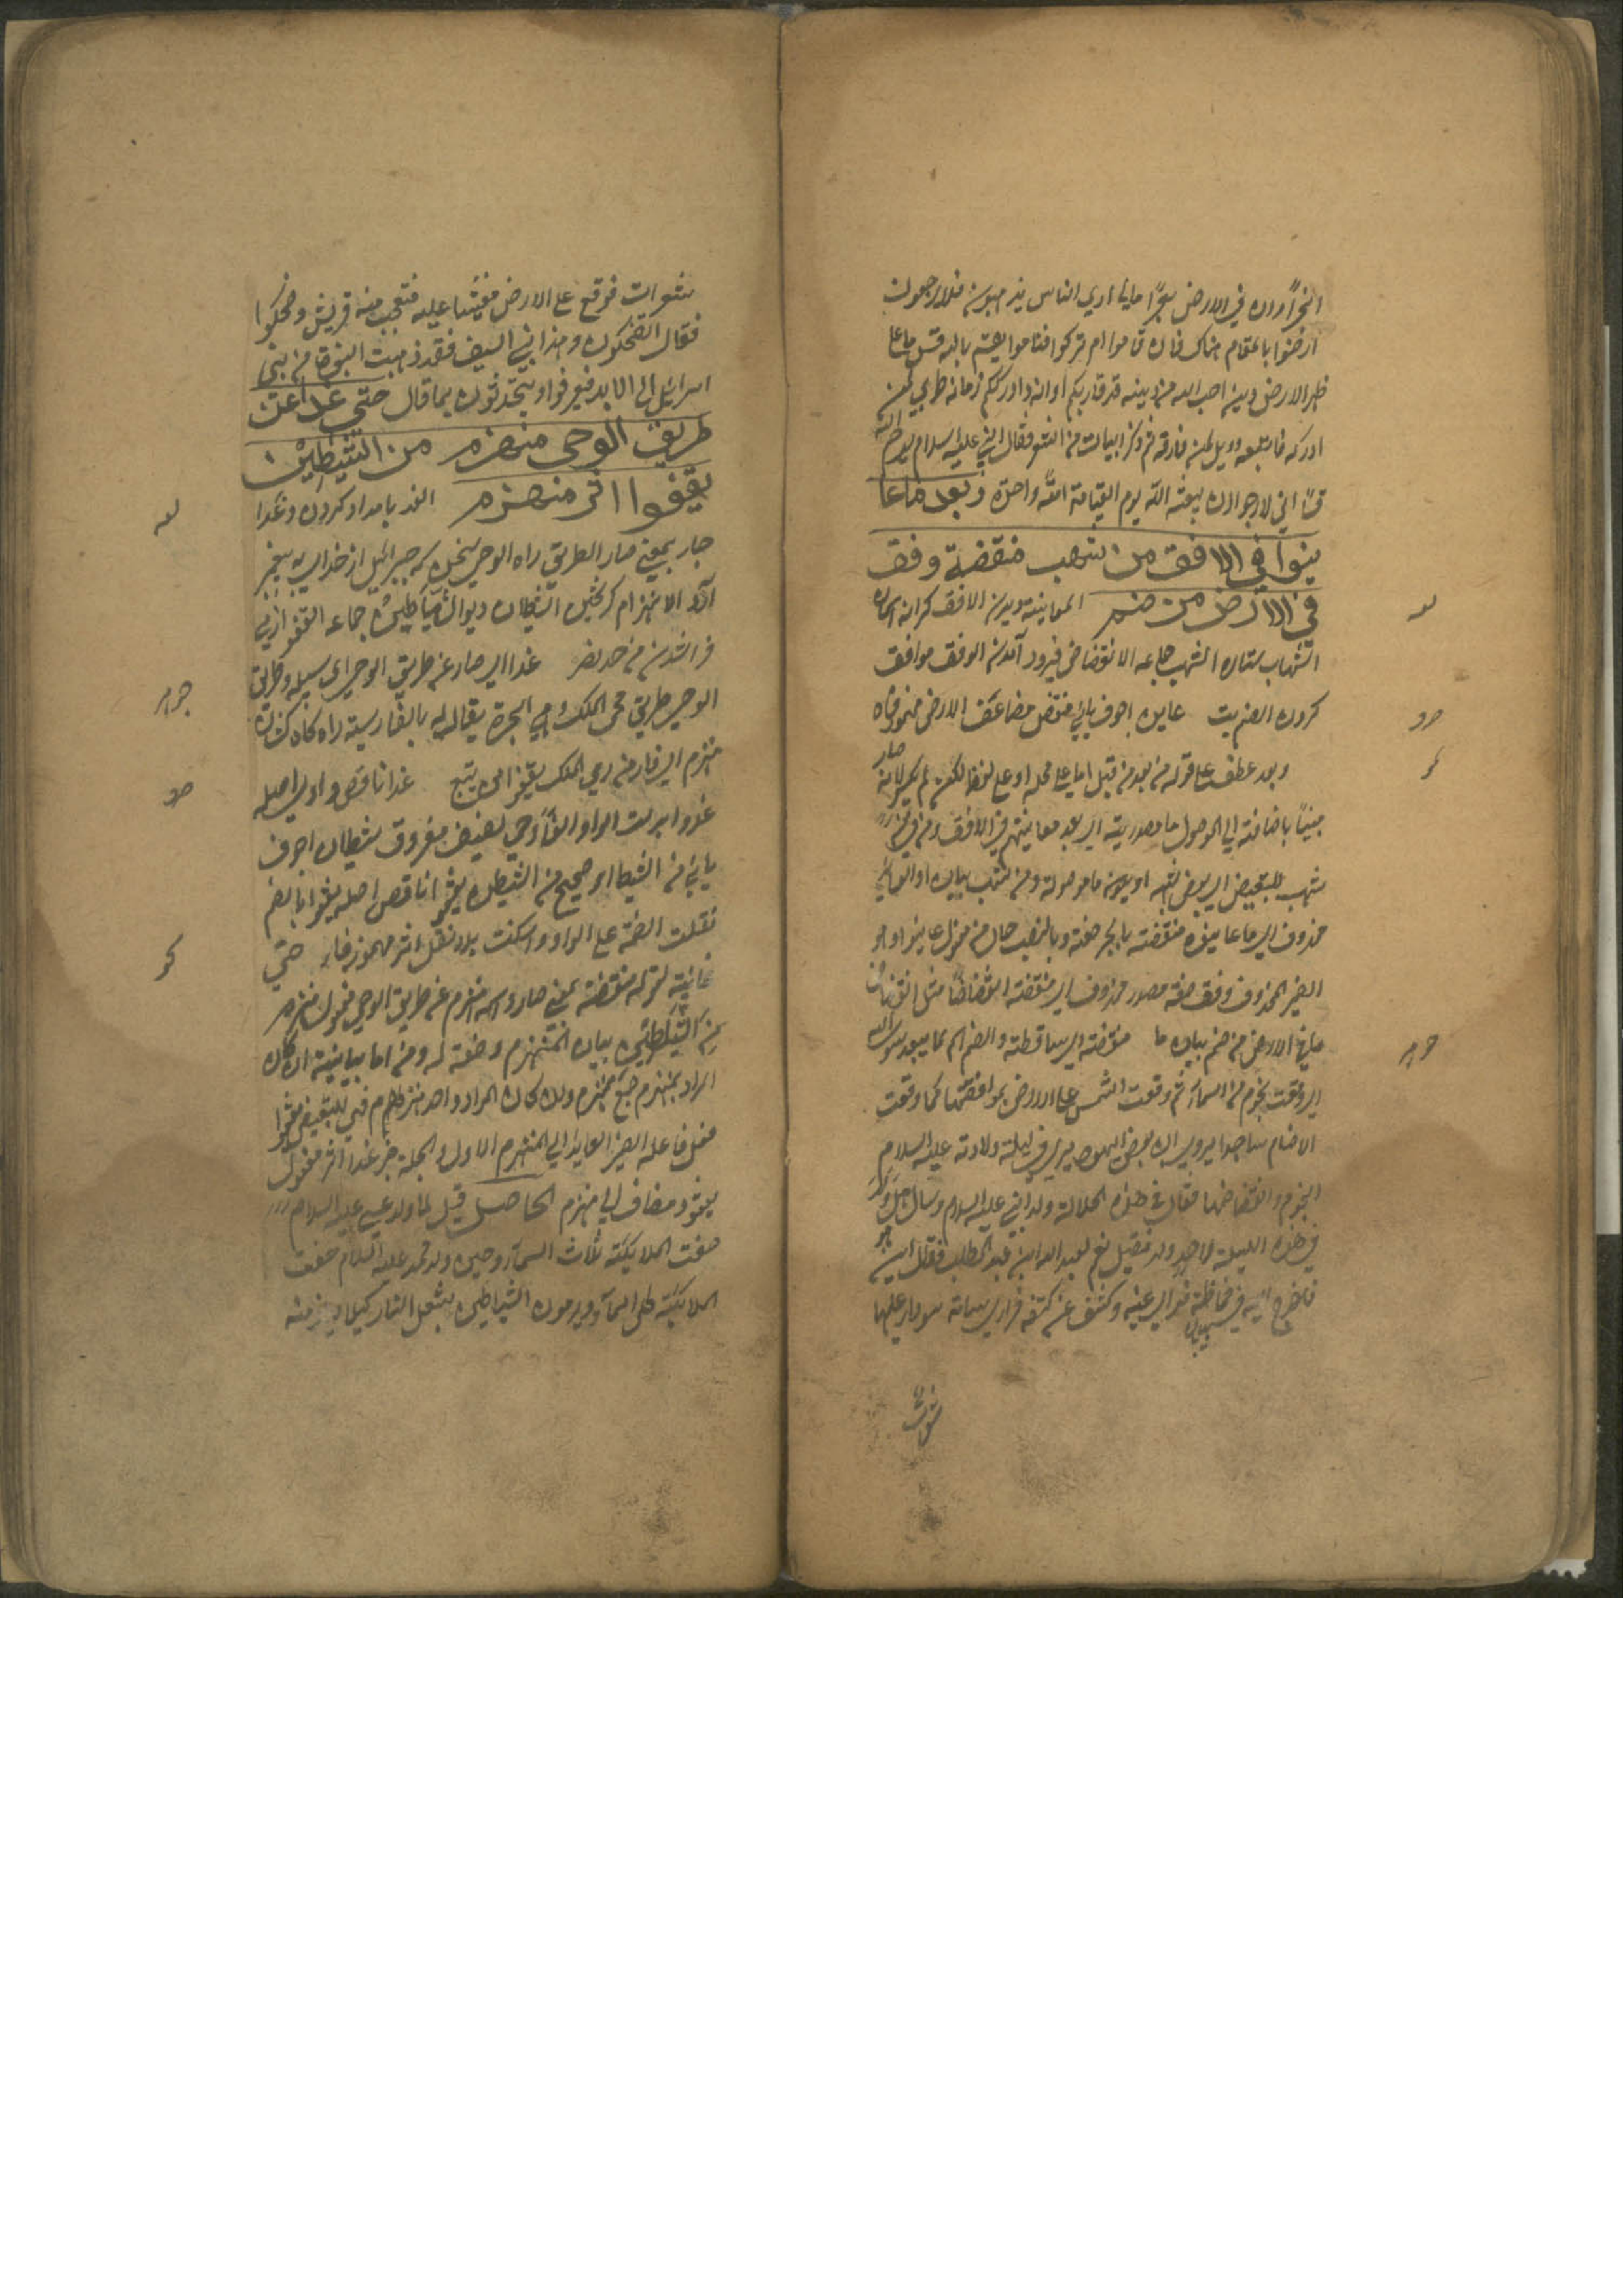 انخرًا وان في الارض بعرًا مالي اري الناس يذهبون فلا يرجعون
ارضوا بالمقام هناك فان قاموا ام تركوا فناموا يقسم بالله قس ما على
ظهر الارض دين احب الله من دينه قد قاربكم اوانه وادرككم زمانه طوبي لمن
ادركه فاتبعه وويل لمن فارقه ثم ذكر ابيات من الشعر فقال النبي عليه السلام يرحم الله
قسًا اني لارجو ان يبعثه الله يوم القيامة امة واحدة وبعد ما عا
ينوا في الافق من شهب منقضة وفق
ما في الارض من صنم المعاينة ديدن الافق كرانه آسمان
الشهاب ستاره الشهب جماعه الانقضاض فرود آمدن الوفق موافق
كردن الصنم بت عاين اجوف يائي منقض مضاعف الارض مهموز فاء
وبعد عطف على قوله من بعد من قبل اما على محله او على لفظه لكن لم يكن
مبنيًا باضافته الي الموصول ما مصدرية اي بعد معاينتهم في الافق ومن في من
شهب للتبعيض اي بعض شهب او ما موصولة ومن شهب بيان او العائد
محذوف اي ما عاينوه منقضة بالجر صفة وبالنصب حال من مفعول عاينوا وهو
الضمير المحذوف وفق صفة مصدر محذوف اي منقضة انقضاضًا مثل انقضاض
ما في الارض من صنم بيان ما منقضة اي ساقطة والصنم الم لما يعبد سوي الله
اي وقعت نجوم من السماء ثم وقعت الشمس على الارض بموافقتها كما وقعت
الاصنام ساجدا يروي ان بعض اليهود يري في ليلة ولادته عليه السلام
النجوم وانقضاضها فقال في هذه الحالة ولد النبي عليه السلام وسال هل ولد
في هذه الليلة لاحد ولد فقيل نعم لعبد الله ابن عبد المطلب فقال اين هو
فاخرج اليه في فنظر الي عينيه وكشف عن كتفه فراي شامة سوداء عليها
شعرات
شعرات فوقع على الارض مغشيا عليه فتعجب منه قريش وضحكوا
فقال اتضحكون وهذا نبي السيف فقد ذهبت النبوة من بني
اسرائيل الي الابد فتفرقوا ويتحدثون بما قال حتى غدا عن
طريق الوحي منهزم من الشيطين
يقفوا اثر منهزم الغد بامداد كردن وغدا
جاء بمعني صار الطريق راه الوحي سخن كه جبرائيل از خداي به پيغمبر
آرد الانهزام گريختن الشيطان ديو الشياطين جماعه القفو از پي
فرا شدن من حد نصر غدا اي صار عن طريق الوحي اي سبيله وطريق
الوحي طريق مجي الملك وهي المجرة يقال له بالفارسية راه كاه كشان
منهزم اي فار من رمي الملك يقفوا اي يتبع غدا ناقص واوي اصله
غدو ابدلت الواو الفًا وحي لفيف مفروق شيطان اجوف
يائي من الشيط او صحيح من الشيطن يقفوا ناقص اصله يقفو بالضم
نقلت الضمة على الواو واسكنت بلا نقل اثر مهموز فاء حتي
غائية لقوله منقضة بمعني صار واسمه منهزم عن طريق الوحي مفعول منهزم
من الشيطين بيان المنهزم وصفة له ومن اما بيانية ان كان
المراد بمنهزم جميع المنهزم وان كان المراد واحد منهزم فهي للتبعيض يقفوا
فعل فاعله الضمير العايد الي المنهزم الاول والجملة خبر غدا اثر مفعول
يقفو ومضاف الي منهزم الحاصل قيل لما ولد عيسي عليه السلام
حفت الملايكة ثلاث السماء وحين ولد محمد عليه السلام حفت
الملايكة كل السماء ويرمون الشياطين بشعل النار كيلا